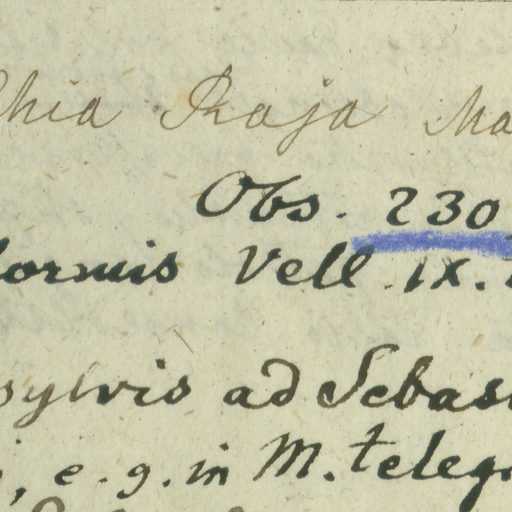 chia Raja Ma
Obs. 230
formis Vell. IX.
sylvis ad Sebast
, e.g. in M. teleg